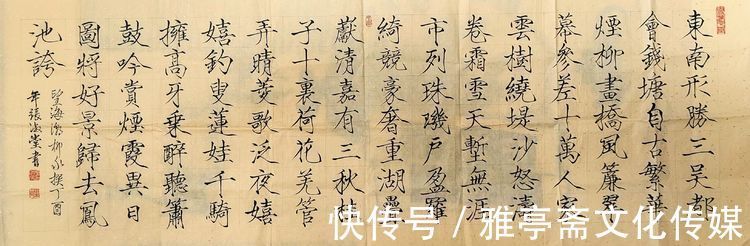 東南形勝三吳都
會錢塘自古繁華
煙柳畫橋風簾翠
幕參差十萬人家
雲樹繞堤沙怒濤
卷霜雪天塹無涯
市列珠璣戶盈羅
綺競豪奢重湖疊
巘清嘉有三秋桂
子十裏荷花羌管
弄晴菱歌泛夜嬉
嬉釣叟蓮娃千騎
擁高牙乘醉聽簫
鼓吟賞煙霞異日
圖將好景歸去鳳
池誇
望海潮柳永撰丁酉
年張淑堂書
快传号/雅亭斋文化传媒